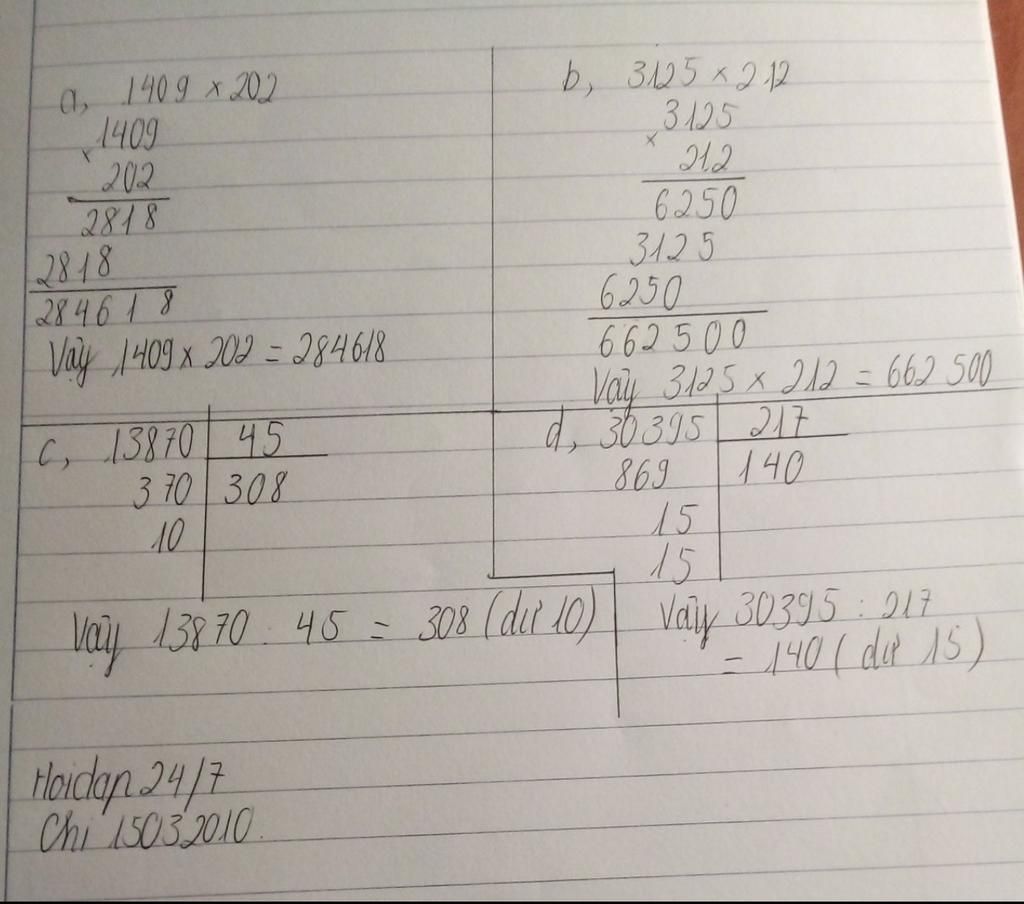 a, 1409 × 202
1409
×
202
2818
2818
284618
Vậy 1409 × 202 = 284618
b, 3125 × 212
3125
×
212
6250
3125
6250
662500
Vậy 3125 × 212 = 662 500
c, 13870 45
370 308
10
Vậy 13870 : 45 = 308 (dư 10)
d, 30395 217
869 140
15
15
Vậy 30395 : 217
= 140 (dư 15)
Hoidap 24/7
Chi 15032010.